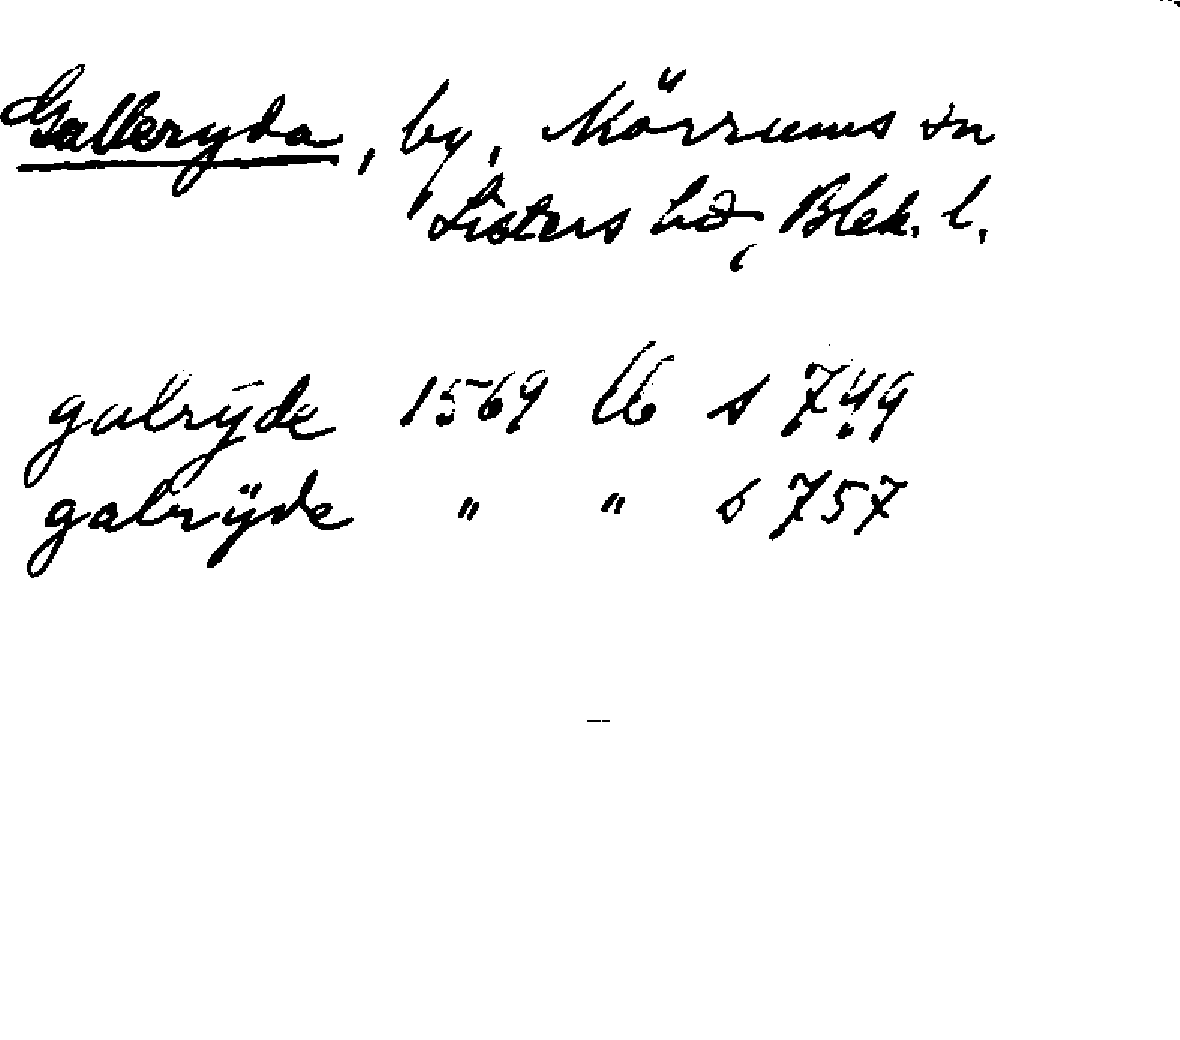 Galleryda, by, Mörrums sn
Listers hd, Blek. l.
galrÿde 1569 LL s 749
galrÿde " " s 757